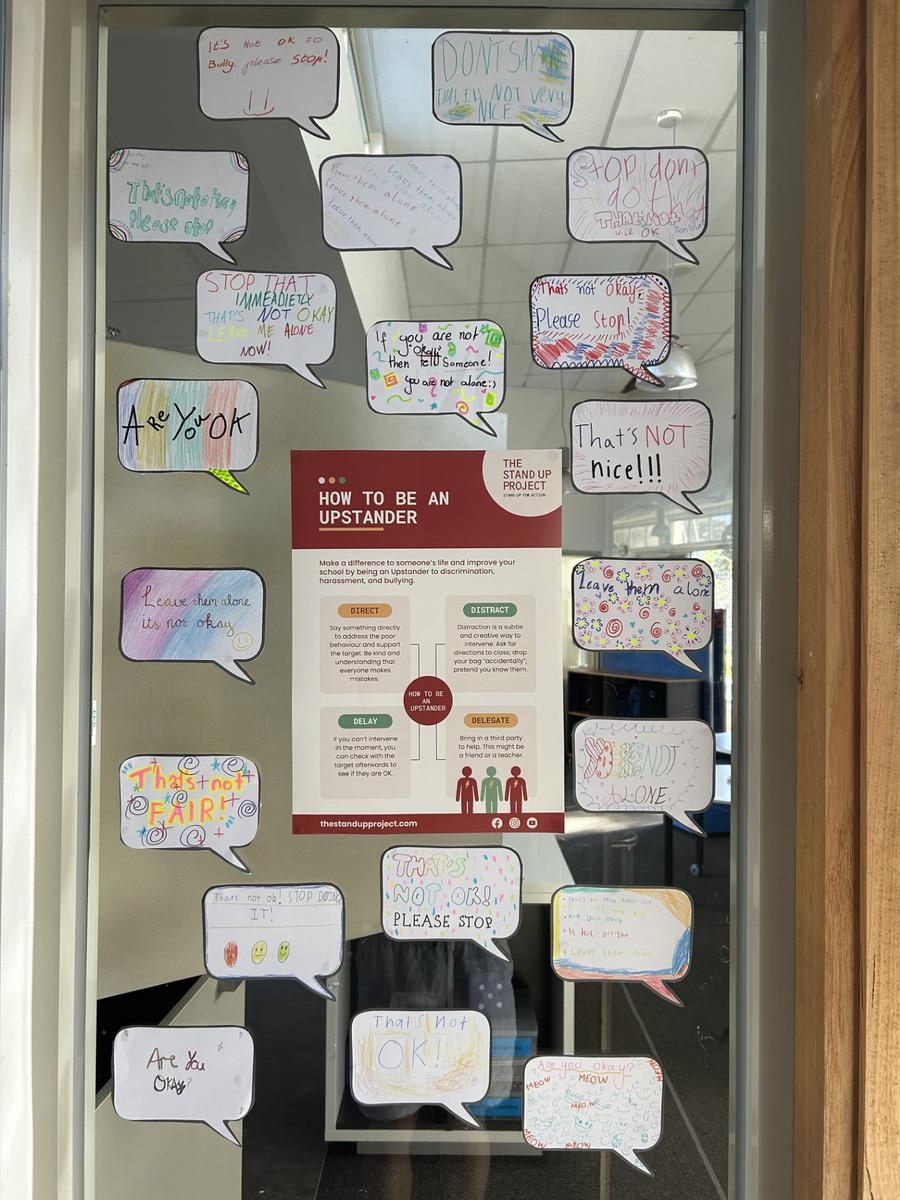 It's Not ok to
Bully. please Stop!
DON'T SAY
THAT, It Is NOT very
NICE
That's not okay
Please stop
Leave them alone
Leave them alone
Leave them alone
Leave them alone
Leave them alone
leave them alone
STOP dont
do it
THAT NOT
OK
STOP THAT
IMMEADIETLY
THAT'S NOT OKAY
LEAVE ME ALONE
NOW!
That's not okay
Please Stop!
If you are not
"okay"
then tell Someone!
you are not alone:)
ARe You OK
That's NOT
nice!!!
THE
STAND UP
PROJECT
STAND UP FOR ACTION
HOW TO BE AN
UPSTANDER
Make a difference to someone's life and improve your
school by being an Upstander to discrimination,
harassment, and bullying.
DIRECT
Say something directly
to address the poor
behaviour and support
the target. Be kind and
understanding that
everyone makes
mistakes.
DISTRACT
Distraction is a subtle
and creative way to
intervene. Ask for
directions to class; drop
your bag "accidentally";
pretend you know them.
HOW TO BE
AN
UPSTANDER
DELAY
If you can't intervene
in the moment, you
can check with the
target afterwards to
see if they are OK.
DELEGATE
Bring in a third party
to help. This might be
a friend or a teacher.
thestandupproject.com
Leave them alone
its not okay
Leave them alone
NOT
ALONE
Thats not
FAIR!
THAT'S
NOT OK!
PLEASE STOP
Thats not ok! STOP DOING
IT!
Are you
Okay?
That's not
OK!
Are you okay?
MEOW
MEOW
MEOW
MEOW
MEOW
MEOW